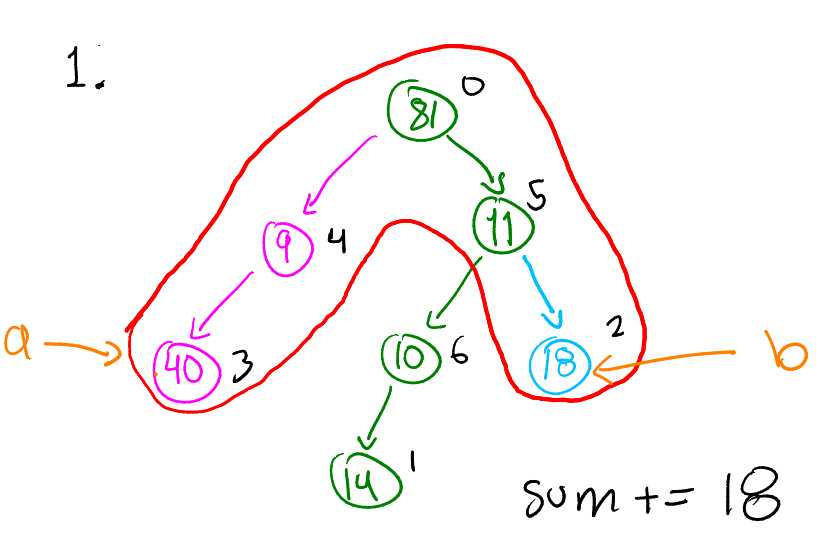 1.
81 0
11 5
9 4
a 40 3 10 6 18 2 b
14 1
sum += 18